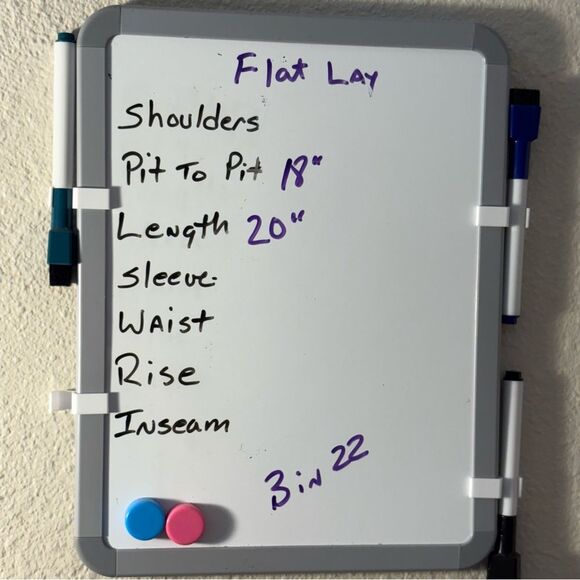 Flat Lay
Shoulders
Pit To Pit 18"
Length 20"
Sleeve
Waist
Rise
Inseam
Bin 22